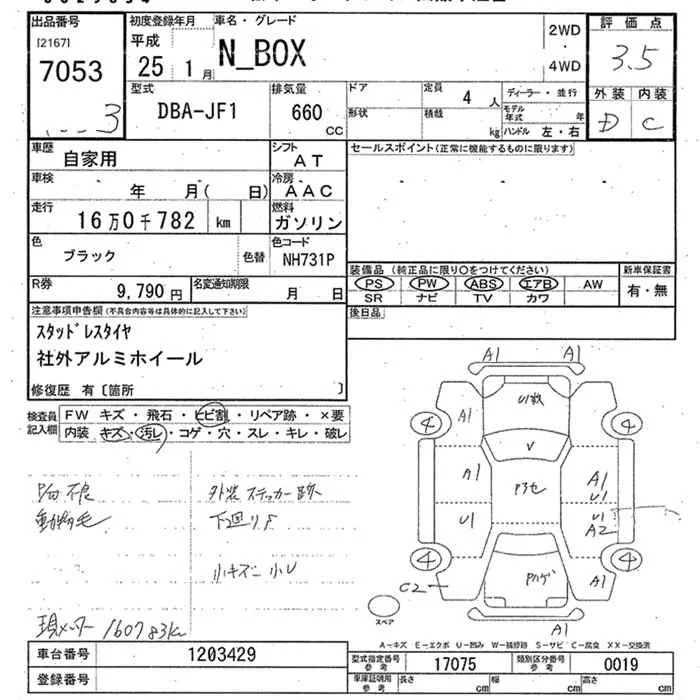 出品番号
[2167]
7053
3
初度登録年月
平成
25 1 月
車名・グレード
N_BOX
2WD
4WD
評価点
3.5
外装 内装
D C
型式
DBA-JF1
排気量
660 CC
ドア
形状
定員
4 人
積載
kg
ディーラー・並行
モデル年式 年
ハンドル 左・右
車歴
自家用
シフト
AT
車検
年 月( 日)
冷房
AAC
走行
16万0千782 km
燃料
ガソリン
色
ブラック
色替
色コード
NH731P
R券
9,790 円
名変通知期限
月 日
セールスポイント(正常に機能するものに限ります)
装備品 (純正品に限り○をつけてください)
PS PW ABS エアB AW
SR ナビ TV カワ
新車保証書
有・無
後日品
注意事項申告欄(不具合内容等は具体的に記入して下さい)
スタッドレスタイヤ
社外アルミホイール
修復歴 有〔箇所 〕
検査員記入欄
FW キズ・飛石・ヒビ割・リペア跡・×要
内装 キズ・汚レ・コゲ・穴・スレ・キレ・破レ
外装ステッカー跡
動物毛
下廻りS
小キズ 小U
現メーター 160783km
A1 A1
A1
U1数
4 4
V
A1
P3セ
A1
U1
U1
U1
A2
4 4
C2
Pハゲ
A1
A1
スペア
A-キズ E-エクボ U-凹み W-補修跡 S-サビ C-腐食 XX-交換済
車台番号
1203429
登録番号
型式指定番号参考
17075
類別区分番号参考
0019
車庫証明用参考
長さ cm
幅 cm
高さ cm